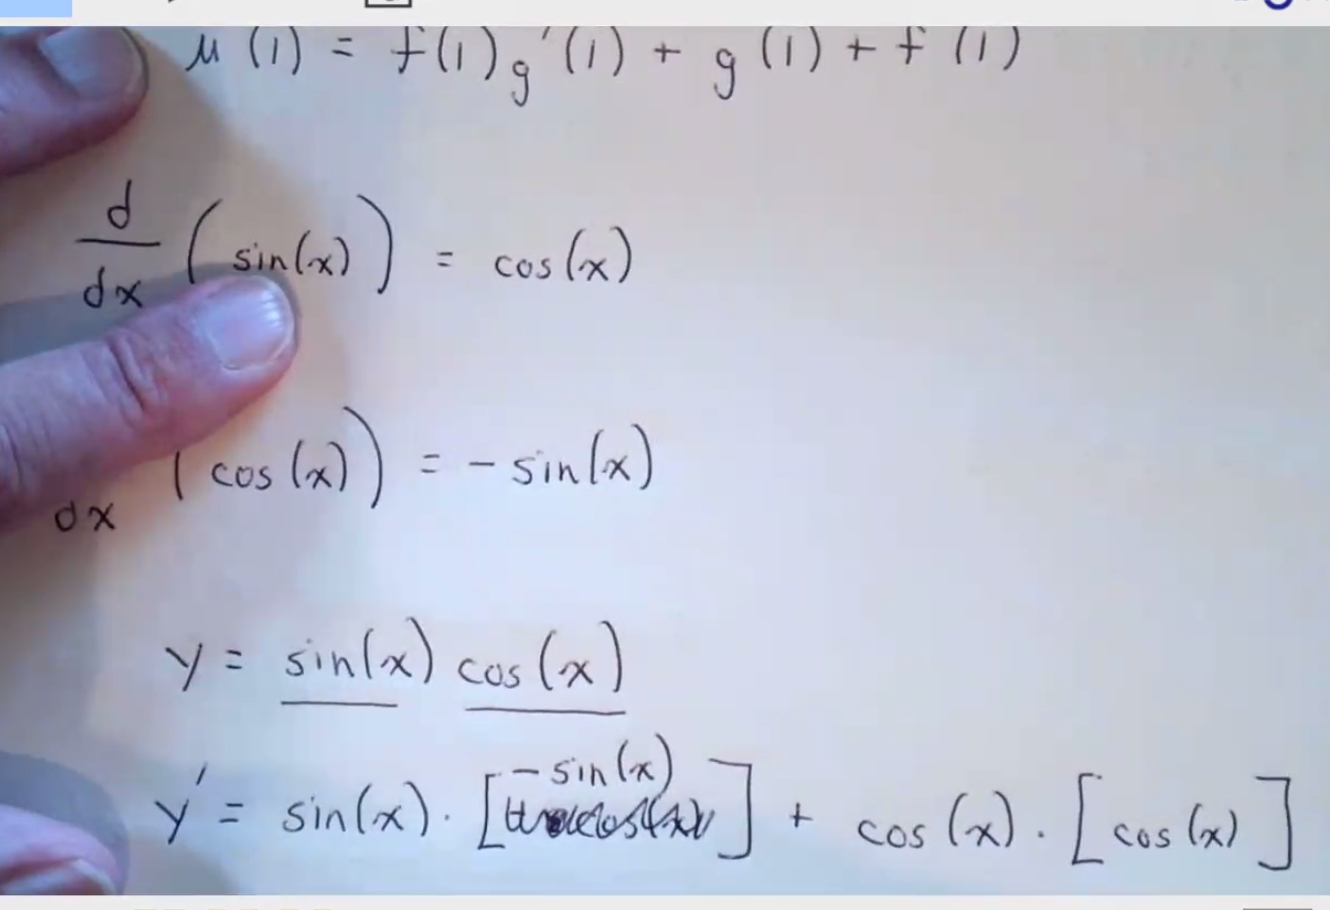 μ(1) = f(1)g'(1) + g(1) + f(1)
d/dx (sin(x)) = cos(x)
dx (cos(x)) = -sin(x)
y = sin(x) cos(x)
y' = sin(x) · [-sin(x)] + cos(x) · [cos(x)]